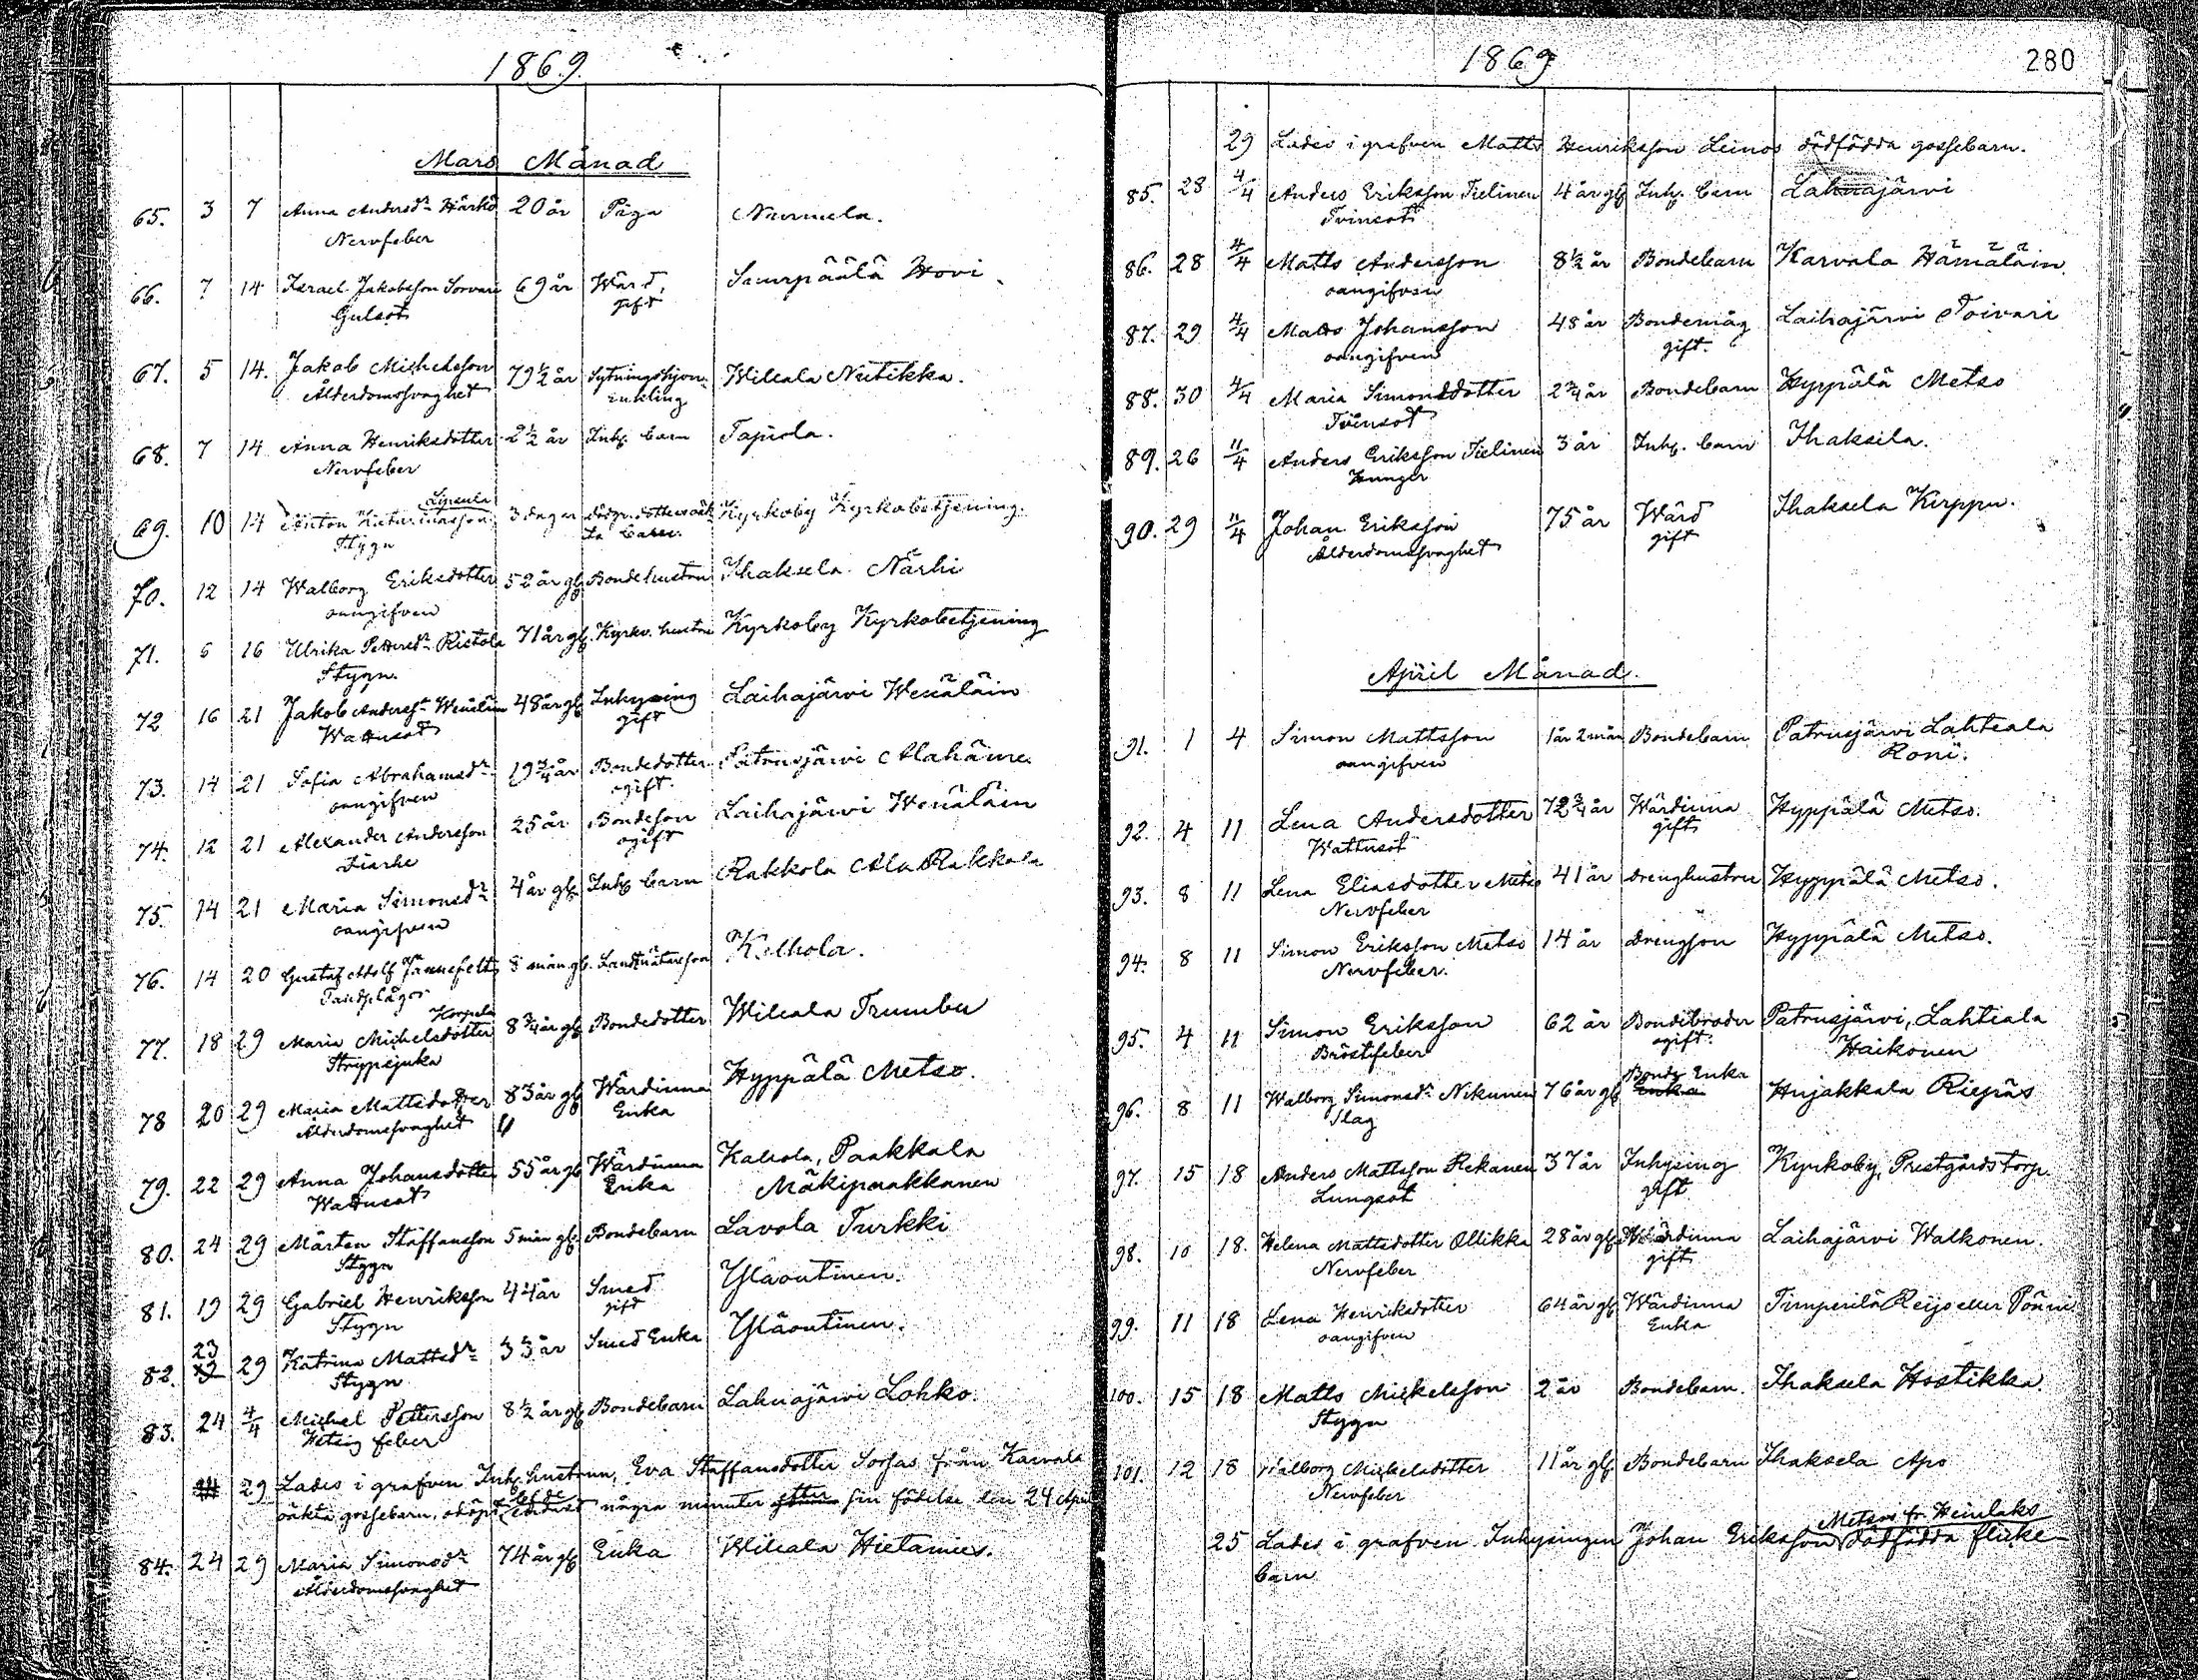 1869.
Mars Månad
65. 3 7 Anna Andersdr Härkö 20 år Piga Nurmela.
Nervfeber
66. 7 14 Israel Jakobsson Sorvari 69 år Wärd, Suurpäälä Hovi
Gulsot gift
67. 5 14. Jakob Michelsson 79 1/2 år Sytningshjon Wilcala Nutikka.
Ålderdomssvaghet Enkling
68. 7 14 Anna Henriksdotter 2 1/2 år Inh. barn Tapiola.
Nervfeber
69. 10 14 Anton Katarinasson 3 dagar Kyrkoby Kyrkobetjening.
Stygn barn.
70. 12 14 Walborg Eriksdotter 52 år gl Bondehustru Ihaksela Närhi
oangifven
71. 6 16 Ulrika Pettersdr Ristola 71 år gl. Kyrkv. hustru Kyrkoby Kyrkobetjening
Stygn.
72 16 21 Jakob Anderss. Wenäläin 48 år gl Inhysing Laihajärvi Wenäläin
Wattusot gift
73. 14 21 Sofia Abrahamsdr 19 3/4 år Bondedotter Patrusjärvi Alahäme.
oangifven ogift.
74. 12 21 Alexander Andersson 25 år Bondeson Laihajärvi Wenäläin
Diarhe ogift
75. 14 21 Maria Simonsdr 4 år gl Inh. barn Rakkola Ala Rakkola
oangifven
76. 14 20 Gustaf Adolf Jannefelt 8 mån gl. Landmätareson Kelhola.
Tandplågor
Korpela
77. 18 29 Maria Michelsdotter 8 3/4 år gl Bondedotter Wilcala Trumbu
Strypsjuka
78 20 29 Maria Mattsdotter 83 år gl Wärdinna Hyppälä Metso.
Ålderdomssvaghet Enka
79. 22 29 Anna Johansdotter 55 år gl Wärdinna Kaltola, Paakkala
Wattusot Enka Mäkipaakkanen
80. 24 29 Mårten Staffansson 5 mån gl. Bondebarn Lavola Turkki
Stygn
81. 19 29 Gabriel Henriksson 44 år Smed Yläoutinen.
Stygn gift
23
82. 29 Katrina Mattsdr 33 år Smed Enka Yläoutinen.
Stygn
83. 24 4/4 Michel Pettersson 8 1/2 år gl Bondebarn Lahnajärvi Lohko.
Hetsig feber
29 Lades i grafven Inh. hustrun, Eva Staffansdotter Sorsas från Karvala
oäkta gossebarn, odöpt lefde endast några minuter efter sin födelse den 24 Apr
84. 24 29 Maria Simonsdr 74 år gl Enka Wilcala Hietamies.
Ålderdomssvaghet
1869
280
29 Lades i grafven Matts Henriksson Leinos dödfödda gossebarn.
85. 28 4/4 Anders Eriksson Tielinen 4 år gl Inh. barn Lahnajärvi
Tvinsot
86. 28 4/4 Matts Andersson 8 1/2 år Bondebarn Karvala Hämäläin
oangifven
87. 29 4/4 Matts Johansson 48 år Bondemåg Laihajärvi Toivari
oangifven gift.
88. 30 4/4 Maria Simonsdotter 2 3/4 år Bondebarn Hyppälä Metso
Tvinsot
89. 26 11/4 Anders Eriksson Tielinen 3 år Inh. barn Ihaksela.
Hunger
90. 29 11/4 Johan Eriksson 75 år Wärd Ihaksela Kirppu.
Ålderdomssvaghet gift
April Månad.
91. 1 4 Simon Mattsson 1 år 2 mån Bondebarn Patrusjärvi Lahteala
oangifven Roni.
92. 4 11 Lena Andersdotter 72 3/4 år Wärdinna Hyppälä Metso.
Wattusot gift
93. 8 11 Lena Eliasdotter Metso 41 år Drenghustru Hyppälä Metso.
Nervfeber
94. 8 11 Simon Eriksson Metso 14 år Drengson Hyppälä Metso.
Nervfeber.
95. 4 11 Simon Eriksson 62 år Bondebroder Patrusjärvi, Lahteala
Bröstfeber ogift. Haikonen
Bonde Enka
96. 8 11 Walborg Simonsdr Nikunen 76 år gl Enka Hujakkala Riepäs
Slag
97. 15 18 Anders Mattsson Rekanen 37 år Inhysing Kyrkoby, Prestgårds torp.
Lungsot gift
98. 10 18. Helena Mattsdotter Ollikka 28 år gl Wärdinna Laihajärvi Walkonen.
Nervfeber gift
99. 11 18 Lena Henriksdotter 64 år gl Wärdinna Timperilä Reijo eller Pönni
oangifven Enka
100. 15 18 Matts Mickelsson 2 år Bondebarn. Ihaksela Hostikka.
Stygn
101. 12 18 Walborg Mickelsdotter 11 år gl. Bondebarn Ihaksela Apo
Nervfeber
Metsos fr. Heinlaks
25 Lades i grafven Inhysingen Johan Eriksson dödfödda flicke
barn